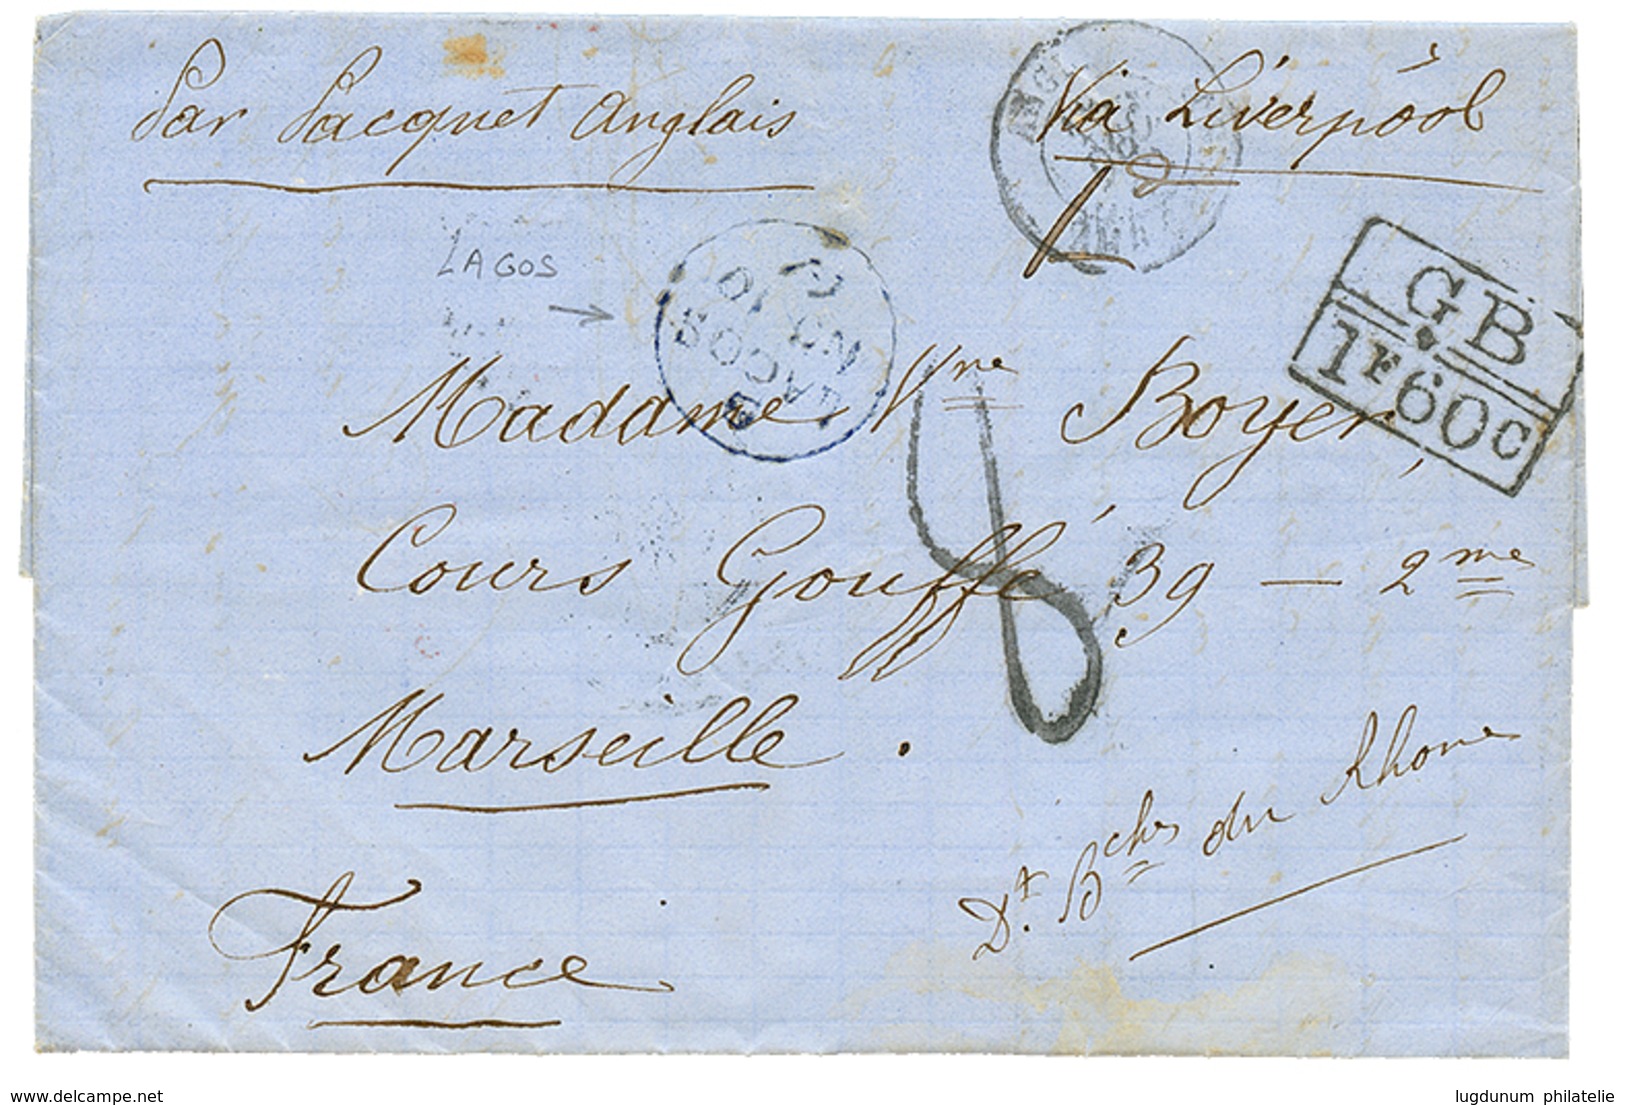 Par Pacquet Anglais
Via Liverpool
LAGOS
LAGOS
GB
1F60c
Madame Vve Boyer,
Cours Gouffé 39 — 2me
Marseille.
Dt. Bches du Rhone
France
www.delcampe.net
lugdunum philatelie